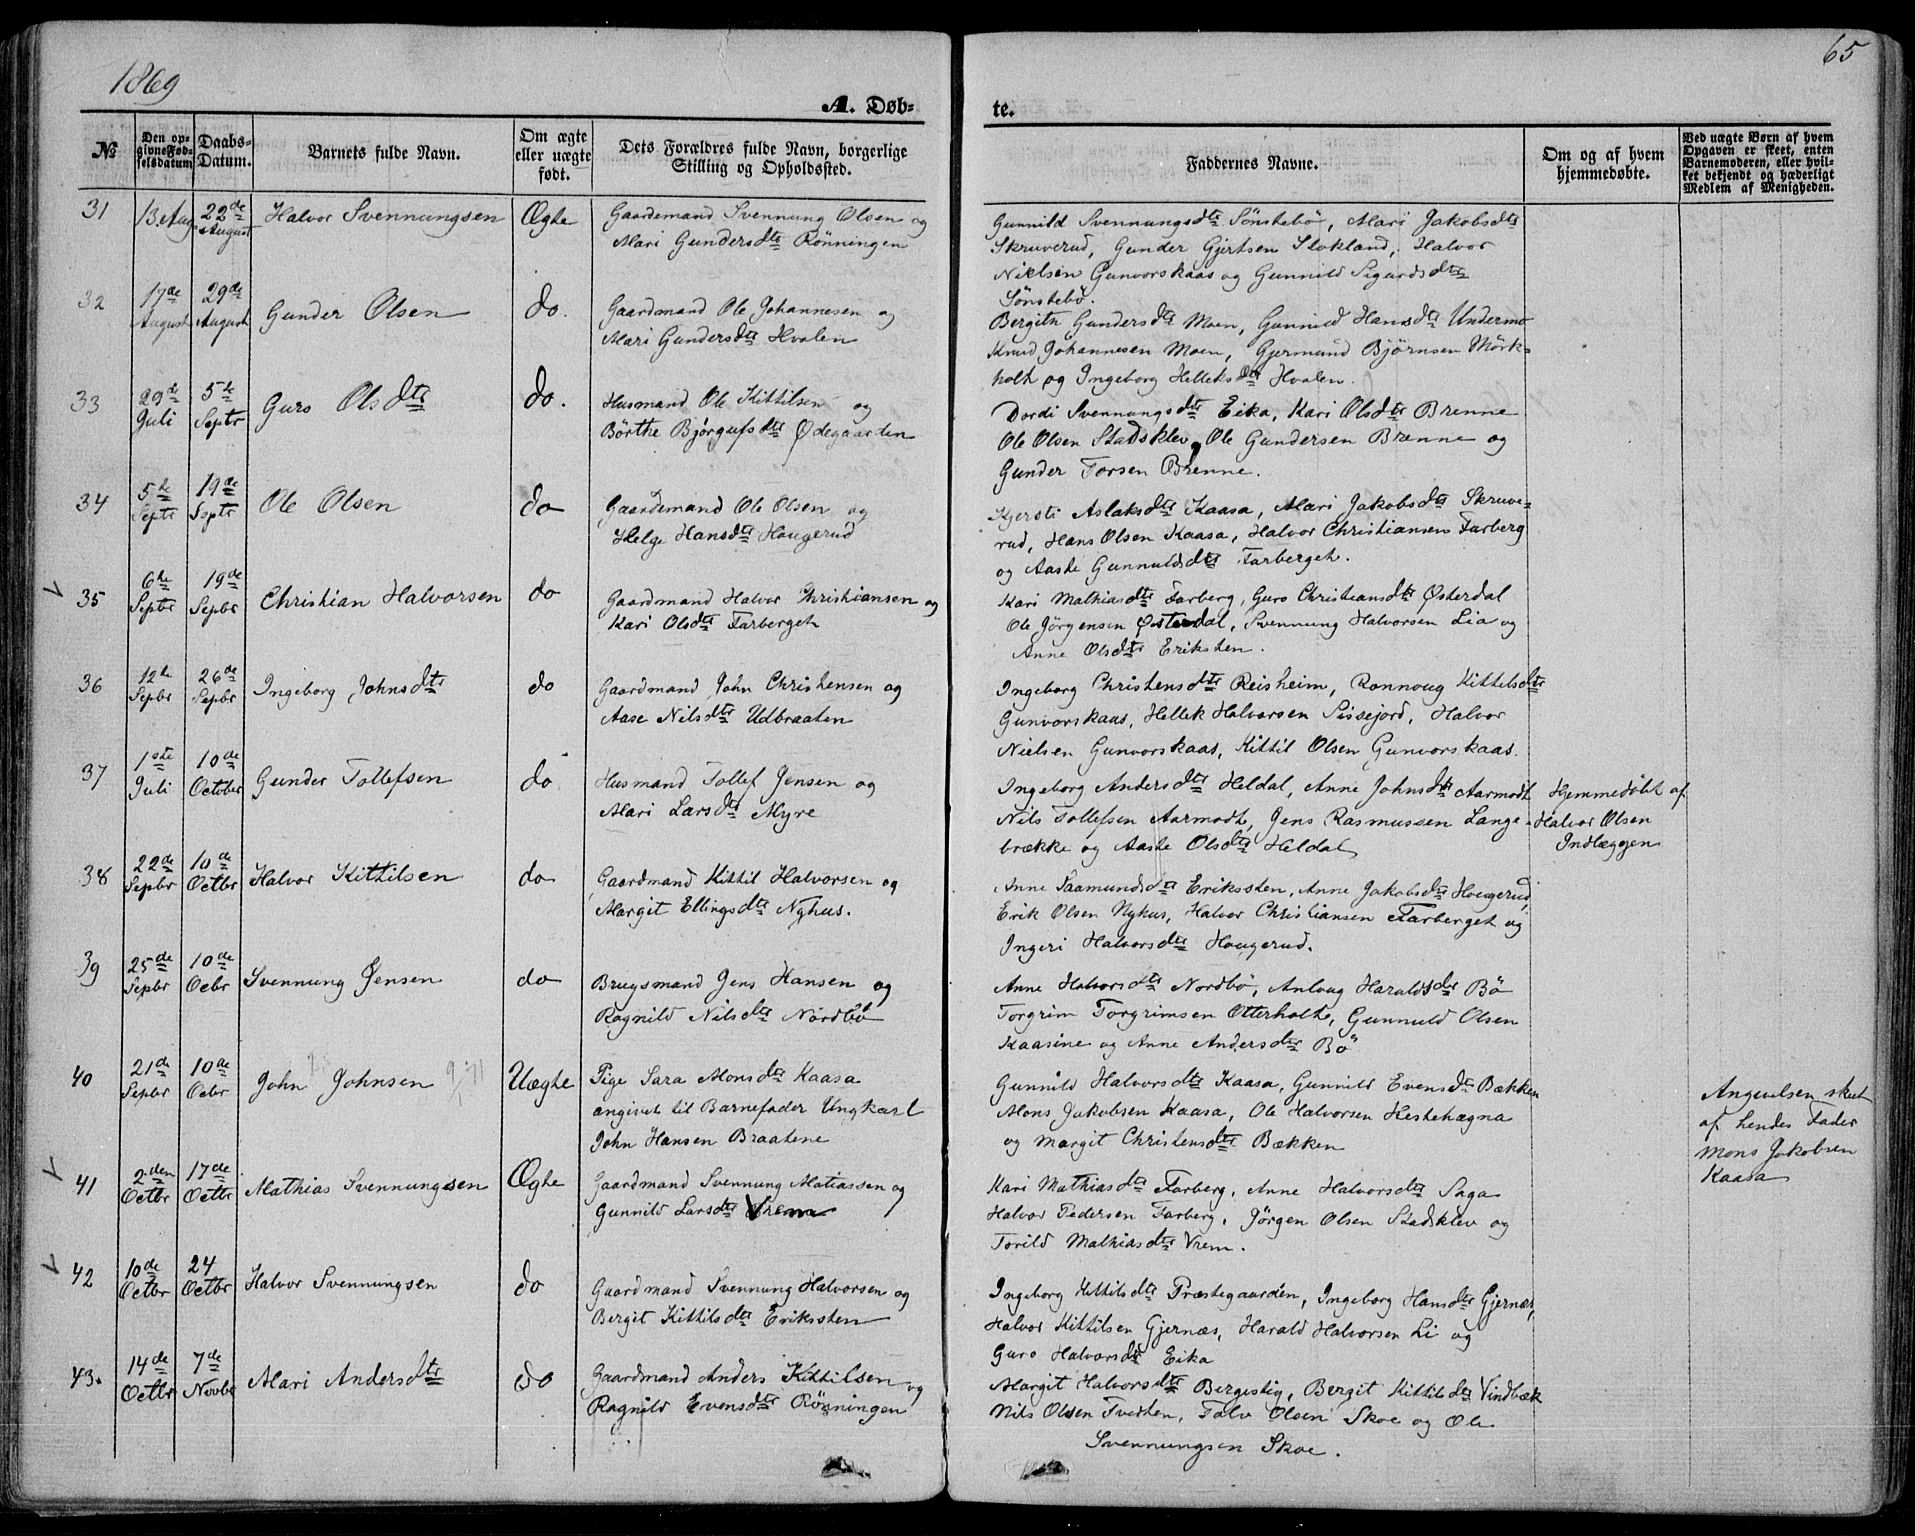 1869
65
A. Døb-
te.
No
Den op-
givne Fød-
selsdatum
Daabs-
Datum.
Barnets fulde Navn.
Om ægte
eller uægte
født.
Dets Forældres fulde Navn, borgerlige
Stilling og Opholdssted.
Faddernes Navne.
Om og af hvem
hjemmedøbte.
Ved uægte Børn af hvem
Opgaven er skeet, enten
Barnemoderen, eller hvil-
ket bekjendt og hæderligt
Medlem af Menigheden.
31
13. Aug.
22de
August
Halvor Svennungsen
Ægte
Gaardemand Svennung Olsen og
Mari Gundersdtr Rönningen
Gunnild Svennungsdtr Sønstebø, Mari Jakobsdtr
Skruverud, Gunder Gjertsen Slokland, Halvor
Nielsen Gunvorskaas og Gunnild Sigurdsdtr
Sønstebø.
32
17de
August
29de
August
Gunder Olsen
do.
Gaardmand Ole Johannesen og
Mari Gundersdtr Hvalen
Bergith Gundersdtr Moen, Gunnild Hansdtr Undermo
Knud Johannesen Moen, Gjermund Bjørnsen Mörk-
holt og Ingeborg Helleksdtr Hvalen.
33
29de
Juli
5te
Septr
Guro Olsdtr
do.
Husmand Ole Kittilsen og
Börthe Bjørgufsdtr Ødegaarden
Dordi Svennungsdtr Eika, Kari Olsdtr Brenne
Ole Olsen Stadsklev, Ole Gundersen Brenne og
Gunder Torsen Brenne.
34
5te
Septr
19de
Septr
Ole Olsen
do
Gaardemand Ole Olsen og
Helge Hansdtr Hougerud
Kjersti Aslaksdtr Kaasa, Mari Jakobsdtr Skruve-
rud, Hans Olsen Kaasa, Halvor Christiansen Farberg
og Aaste Gunnuldsdtr Farberget.
35
6te
Sepbr
19de
Sepbr
Christian Halvorsen
do
Gaardmand Halvor Christiansen og
Kari Olsdtr Farberget
Kari Mathiasdtr Farberg, Guro Christiansdtr Østerdal
Ole Jörgensen Østerdal, Svennung Halvorsen Lia og
Anne Olsdtr Eriksten.
36
12te
Sepbr
26de
Sepbr
Ingeborg Johnsdtr
do
Gaardmand John Christensen og
Aase Nilsdtr Udbraaten
Ingeborg Christensdtr Reisheim, Ronnoug Kittilsdtr
Gunvorskaas, Hellek Halvorsen Sissejord, Halvor
Nielsen Gunvorskaas, Kittil Olsen Gunvorskaas.
37
1ste
Juli
10de
October
Gunder Tollefsen
do
Husmand Tollef Jensen og
Mari Larsdtr Myre
Ingeborg Andersdtr Heldal, Anne Johnsdtr Aarmodt
Nils Tollefsen Aarmodt, Jens Rasmussen Lange-
brække og Aaste Olsdtr Heldal
Hjemmedøbt af
Halvor Olsen
Indlæggen
38
22de
Sepbr
10de
Octbr
Halvor Kittilsen
do
Gaardmand Kittil Halvorsen og
Margit Ellingsdtr Nyhus.
Anne Saamundsdtr Eriksten, Anne Jakobsdtr Hougerud,
Erik Olsen Nyhus, Halvor Christiansen Farberget og
Ingeri Halvorsdtr Hougerud.
39
25de
Sepbr
10de
Ocbr
Svennung Jensen
do
Brugsmand Jens Hansen og
Ragnild Nilsdtr Nordbö
Anne Halvorsdtr Nordbø, Anlaug Haraldsdtr Bö
Torgrim Torgrimsen Otterholt, Gunnuld Olsen
Kaasine og Anne Andersdtr Bö
40
21de
Sepbr
10de
Ocbr
John Johnsen
Uægte
Pige Sara Monsdtr Kaasa
angivet til Barnefader Ungkarl
John Hansen Braatene
Gunnild Halvorsdtr Kaasa, Gunnild Evensdtr Bækken
Mons Jakobsen Kaasa, Ole Halvorsen Hestehægna
og Margit Christensdtr Bækken
Angivelsen skeet
af hendes Fader
Mons Jakobsen
Kaasa
41
2den
Octbr
17de
Octbr
Mathias Svennungsen
Ægte
Gaardmand Svennung Matiassen og
Gunnild Larsdtr Vrem
Kari Mathiasdtr Farberg, Anne Halvorsdtr Saga
Halvor Pedersen Farberg, Jörgen Olsen Stadsklev og
Torild Mathiasdtr Vrem.
42
10de
Octbr
24
Octbr
Halvor Svennungsen
do
Gaardmand Svennung Halvorsen og
Bergit Kittilsdtr Eriksten
Ingeborg Kittilsdtr Præstegaarden, Ingeborg Hansdtr Gjernæs,
Halvor Kittilsen Gjernæs, Harald Halvorsen Li og
Guro Halvorsdtr Eika
43.
14de
Octbr
7de
Novbr
Mari Andersdtr
do
Gaardmand Anders Kittilsen og
Ragnild Evensdtr Rönningen
Margit Halvorsdtr Bergestig, Bergit Kittilsdtr Vindbæk
Nils Olsen Tvedten, Talv Olsen Skoe og Ole
Svennungsen Skoe.